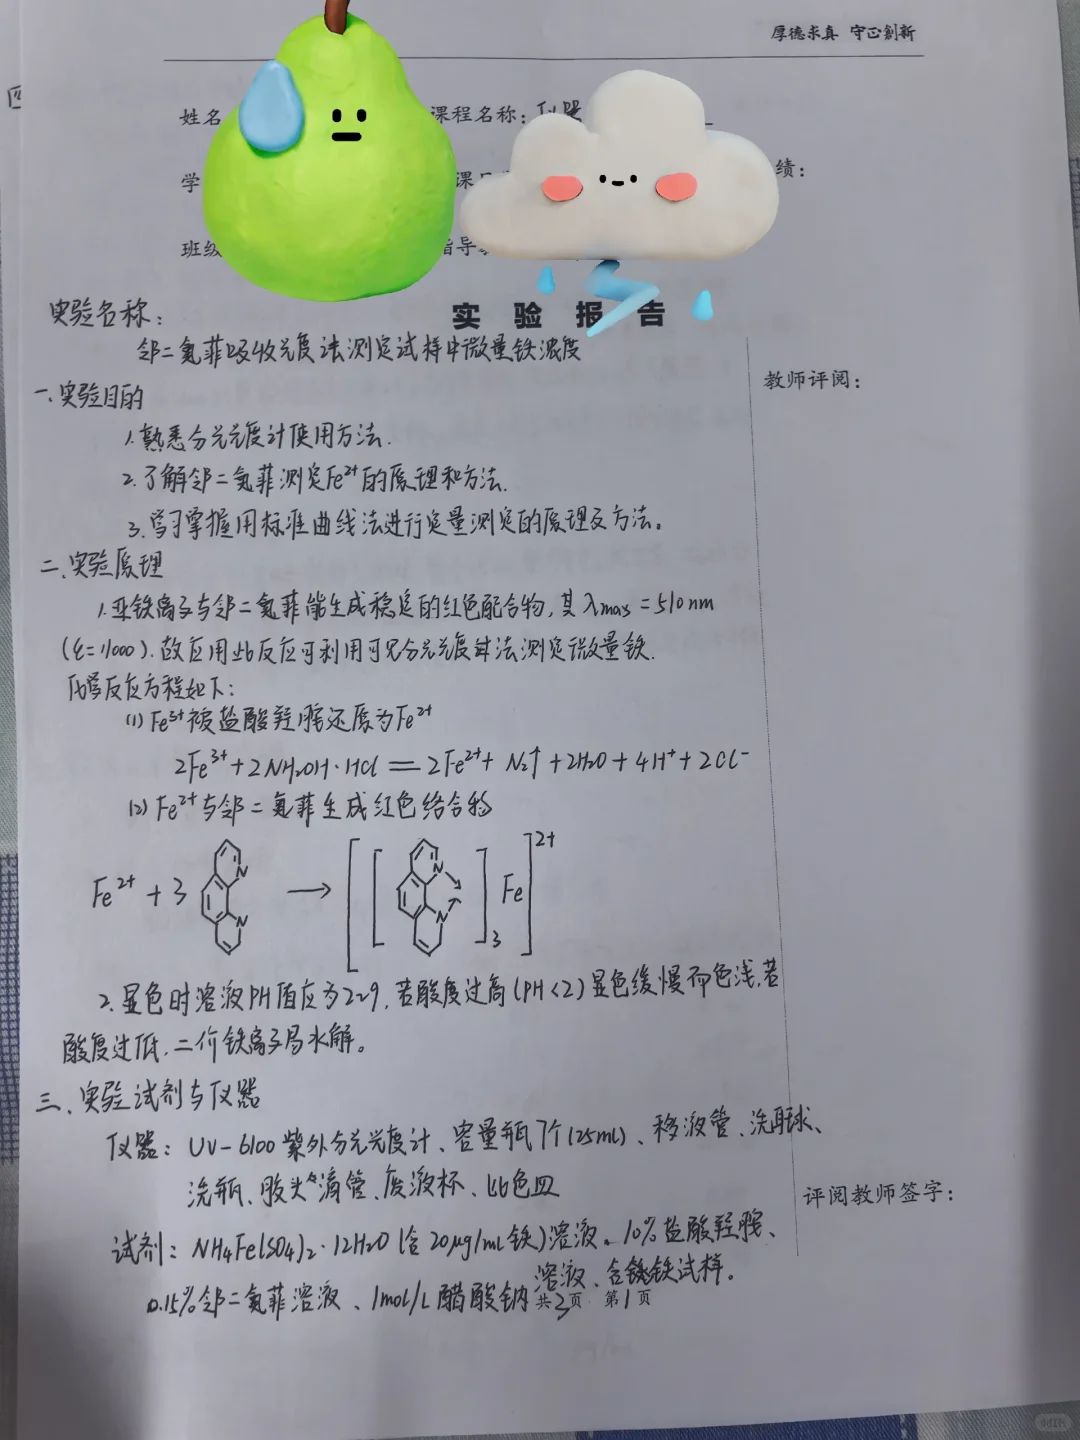 厚德求真 守正创新
四
姓名
课程名称：仪器
学
课
绩：
班级
指导
实验报告
实验名称：
邻二氮菲吸收光度法测定试样中微量铁浓度
教师评阅：
一.实验目的
1.熟悉分光光度计使用方法.
2.了解邻二氮菲测定Fe²⁺的原理和方法.
3.学习掌握用标准曲线法进行定量测定的原理及方法。
二.实验原理
1.亚铁离子与邻二氮菲能生成稳定的红色配合物,其λmax=510nm
(ε=11000).故应用此反应可利用可见分光光度计法测定微量铁.
化学反应方程如下：
(1) Fe³⁺被盐酸羟胺还原为Fe²⁺
2Fe³⁺+2NH₂OH·HCl=2Fe²⁺+N₂↑+2H₂O+4H⁺+2Cl⁻
(2) Fe²⁺与邻二氮菲生成红色络合物
Fe²⁺+3 N N → [[N N]₃Fe]²⁺
2.显色时溶液PH值应为2~9,若酸度过高(PH<2)显色缓慢而色浅,若
酸度过低.二价铁离子易水解。
三、实验试剂与仪器
仪器：UV-6100紫外分光光度计、容量瓶7个(25ml)、移液管、洗耳球、
洗瓶、胶头滴管、废液杯、比色皿
评阅教师签字：
试剂：NH₄Fe(SO₄)₂·12H₂O(含20μg/ml铁)溶液。10%盐酸羟胺、
溶液、含铁试样。
0.15%邻二氮菲溶液、1mol/L醋酸钠
共3页 第1页